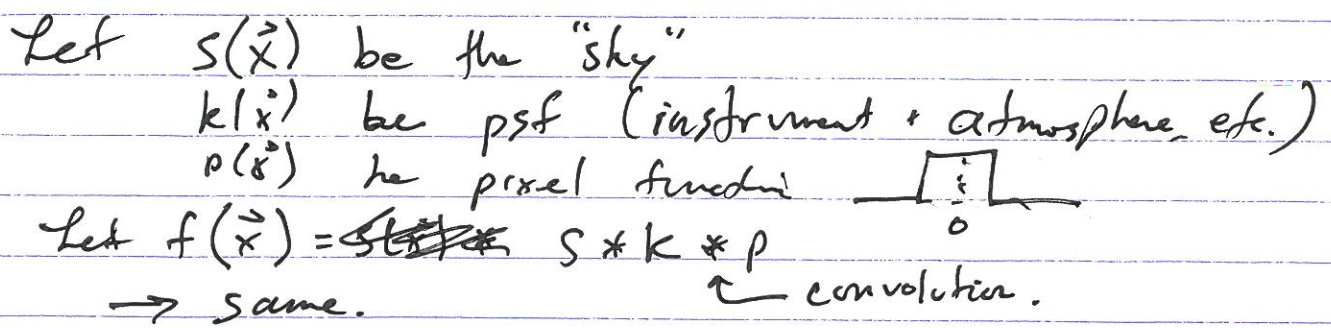 Let s(x⃗) be the "sky"
k(x⃗) be psf (instrument + atmosphere etc.)
p(x⃗) be pixel function
0
Let f(x⃗) = s * k * p
→ same. convolution.